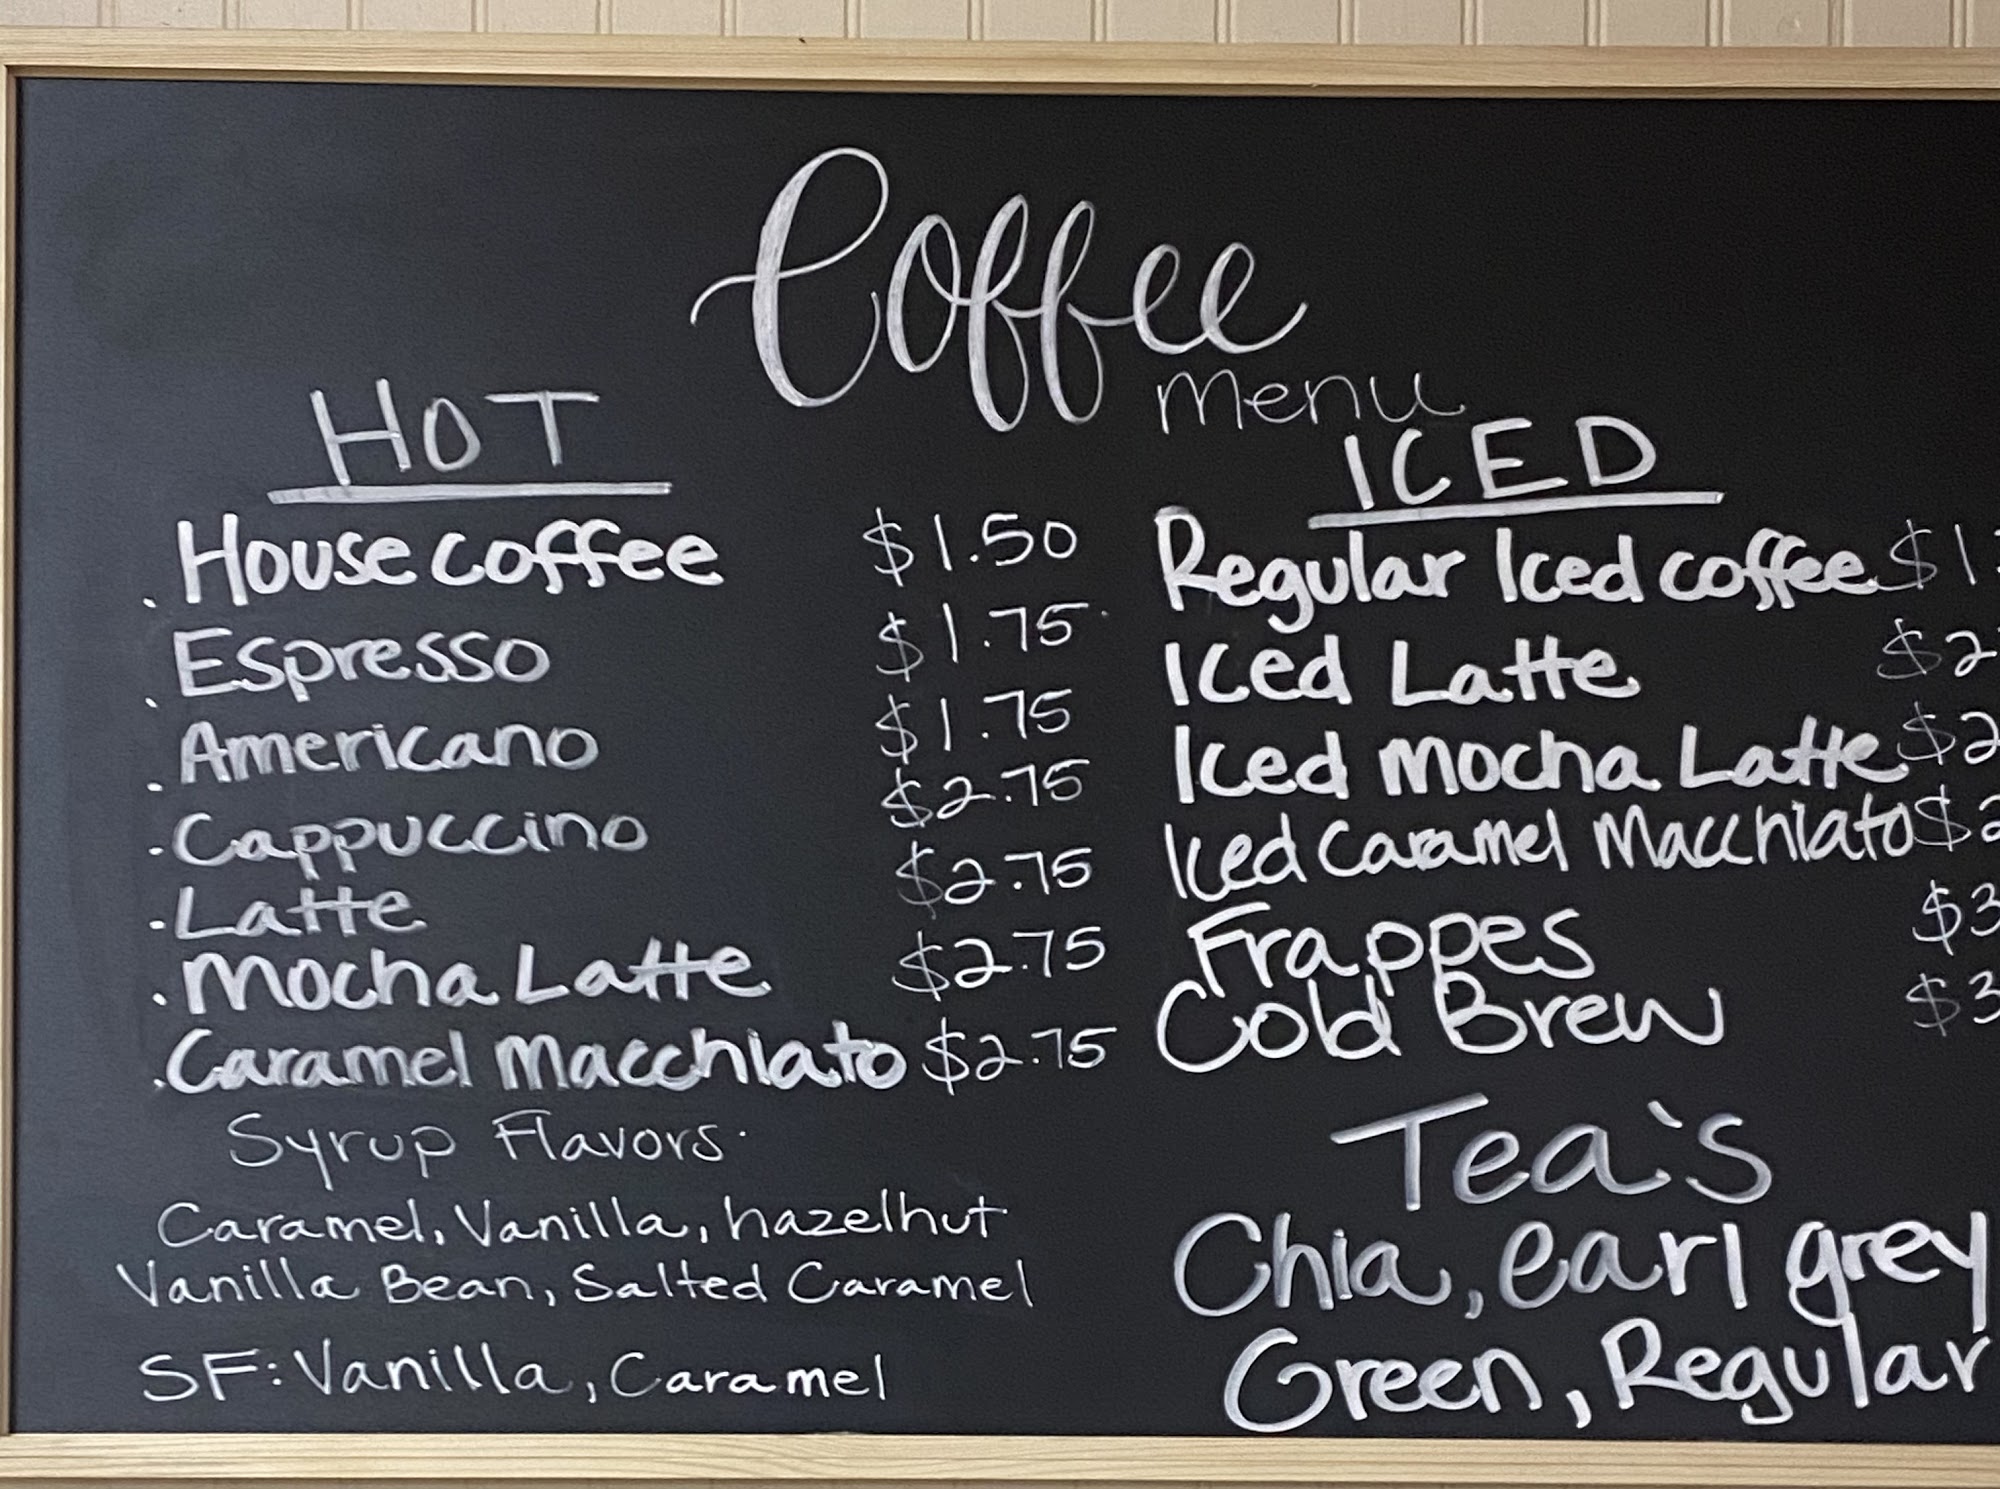 Coffee
menu
HOT
. House coffee $1.50
. Espresso $1.75
. Americano $1.75
. Cappuccino $2.75
. Latte $2.75
. Mocha Latte $2.75
. Caramel Macchiato $2.75
Syrup Flavors.
Caramel, Vanilla, hazelnut
Vanilla Bean, Salted Caramel
SF: Vanilla, Caramel
ICED
Regular Iced coffee $1.
Iced Latte $2
Iced Mocha Latte $2
Iced Caramel Macchiato $2
Frappes $3
Cold Brew $3
Tea's
Chia, earl grey
Green, Regular